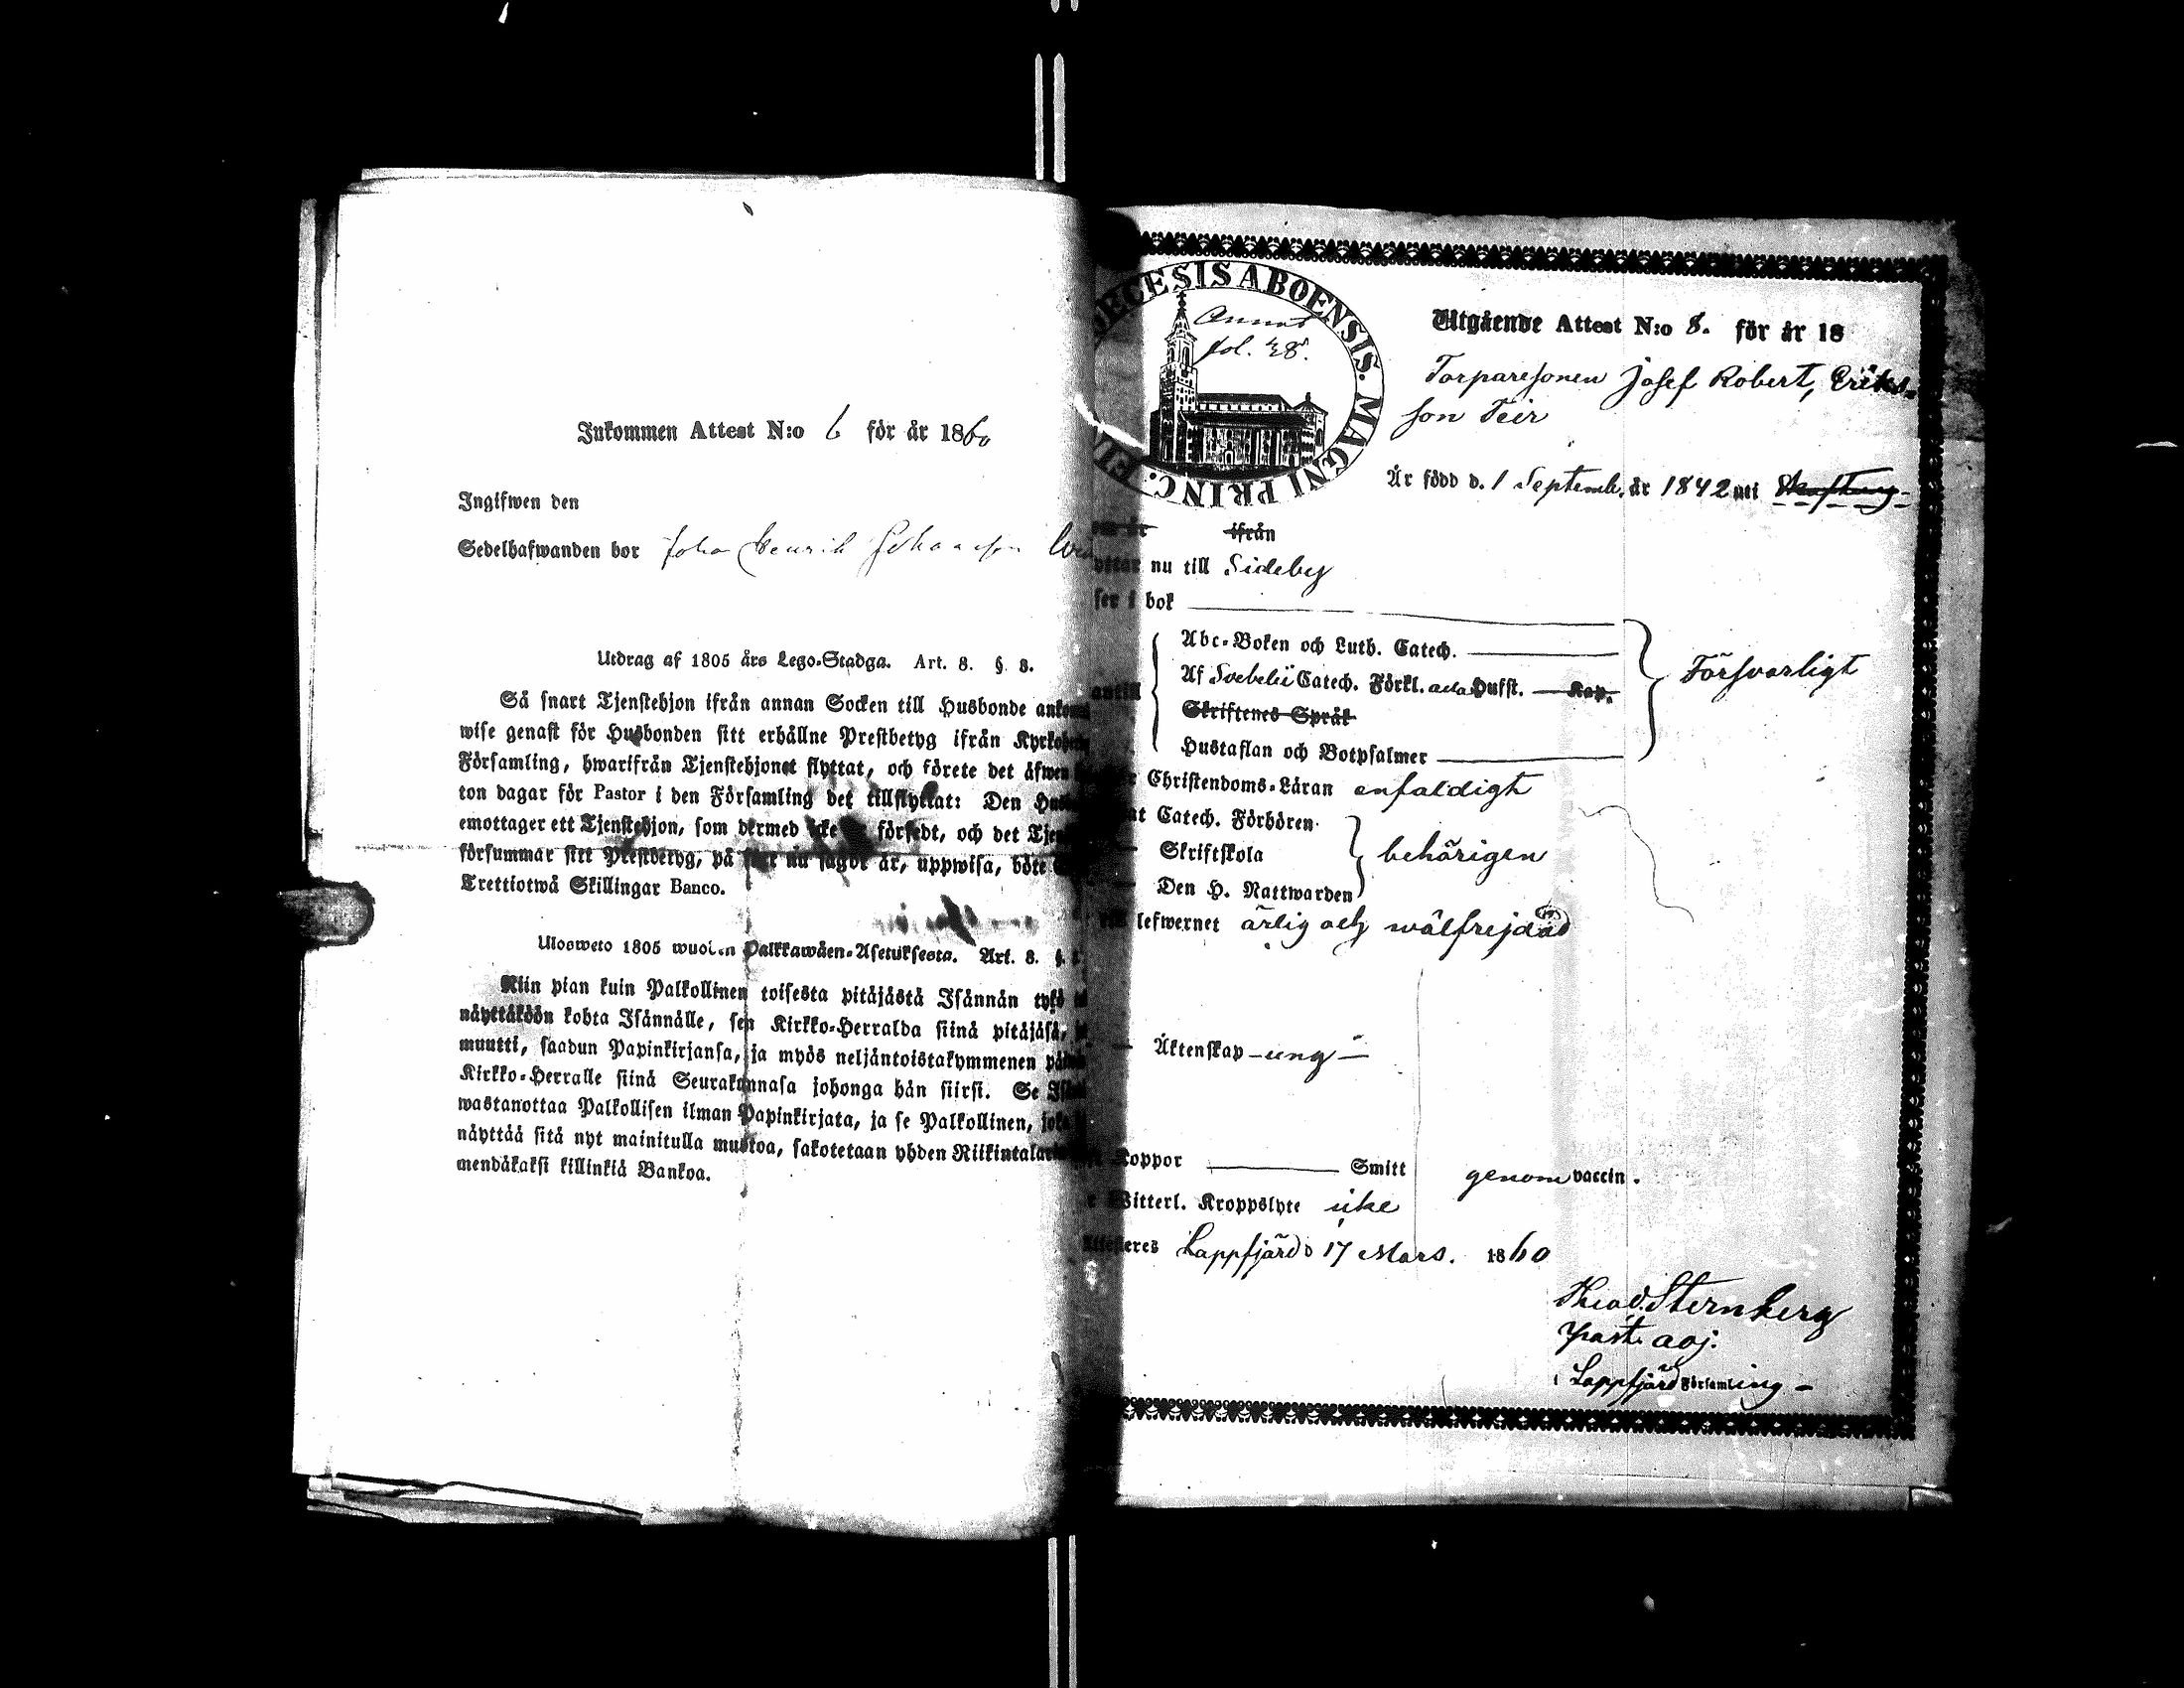 Inkommen Attest N:o 6 för år 1860
Ingifwen den
Sedelhafwanden bor Joha Henrik Johansson
Utdrag af 1805 års Lego-Stadga. Art. 8. §. 8.
Så snart Tjenstehjon ifrån annan Socken till Husbonde
wise genast för Husbonden sitt erhållne Prestbetyg ifrån
Församling, hwarifrån Tjenstehjonet flyttat, och förete det äfwen
ton dagar för Pastor i den Församling det tillflyttat: Den
emottager ett Tjenstehjon, som dermed icke försedt, och det
försummar sitt Prestbetyg, på sätt nu sagdt är, uppwisa, böte
Trettiotwå Skillingar Banco.
Ulosweto 1805 wuoden Palkkawäen-Asetuksesta. Art. 8. §.
Niin pian kuin Palkollinen toisesta pitäjästä Isännän tykö
näyttäköön kohta Isännälle, sen Kirkko-Herralda siinä pitäjäsä,
muutti, saadun Papinkirjansa, ja myös neljäntoistakymmenen
Kirkko-Herralle siinä Seurakunnasa johonga hän siirsi. Se
wastanottaa Palkollisen ilman Papinkirjata, ja se Palkollinen,
näyttää sitä nyt mainitulla muotoa, sakotetaan yhden
mendäkaksi killinkiä Bankoa.
DIOECESIS ABOENSIS. MAGNI PRINC. FINL
fol. 38.
Utgående Attest N:o 8. för år 18
Torparesonen Josef Robert, Eriks-
son Teir
Är född d. 1 Septemb. år 1842 uti
ifrån
nu till Sideby
bok
Abc-Boken och Luth. Catech.
Af Svebelii Catech. Förkl. Husst. Kap.
Skriftenes Språk
Hustaflan och Botpsalmer
Försvarligt
Christendoms-Läran enfaldigt
Catech. Förhören
Skriftskola
Den H. Nattwarden
behörigen
lefwernet ärlig och wälfrejdad
Äktenskap - ung -
Koppor Smitt genom vaccin.
Witterl. Kroppslyte icke
Attesteres Lappfjärd d 17 Mars. 1860
Theod. Sternberg
past. adj.
i Lappfjärd Församling -